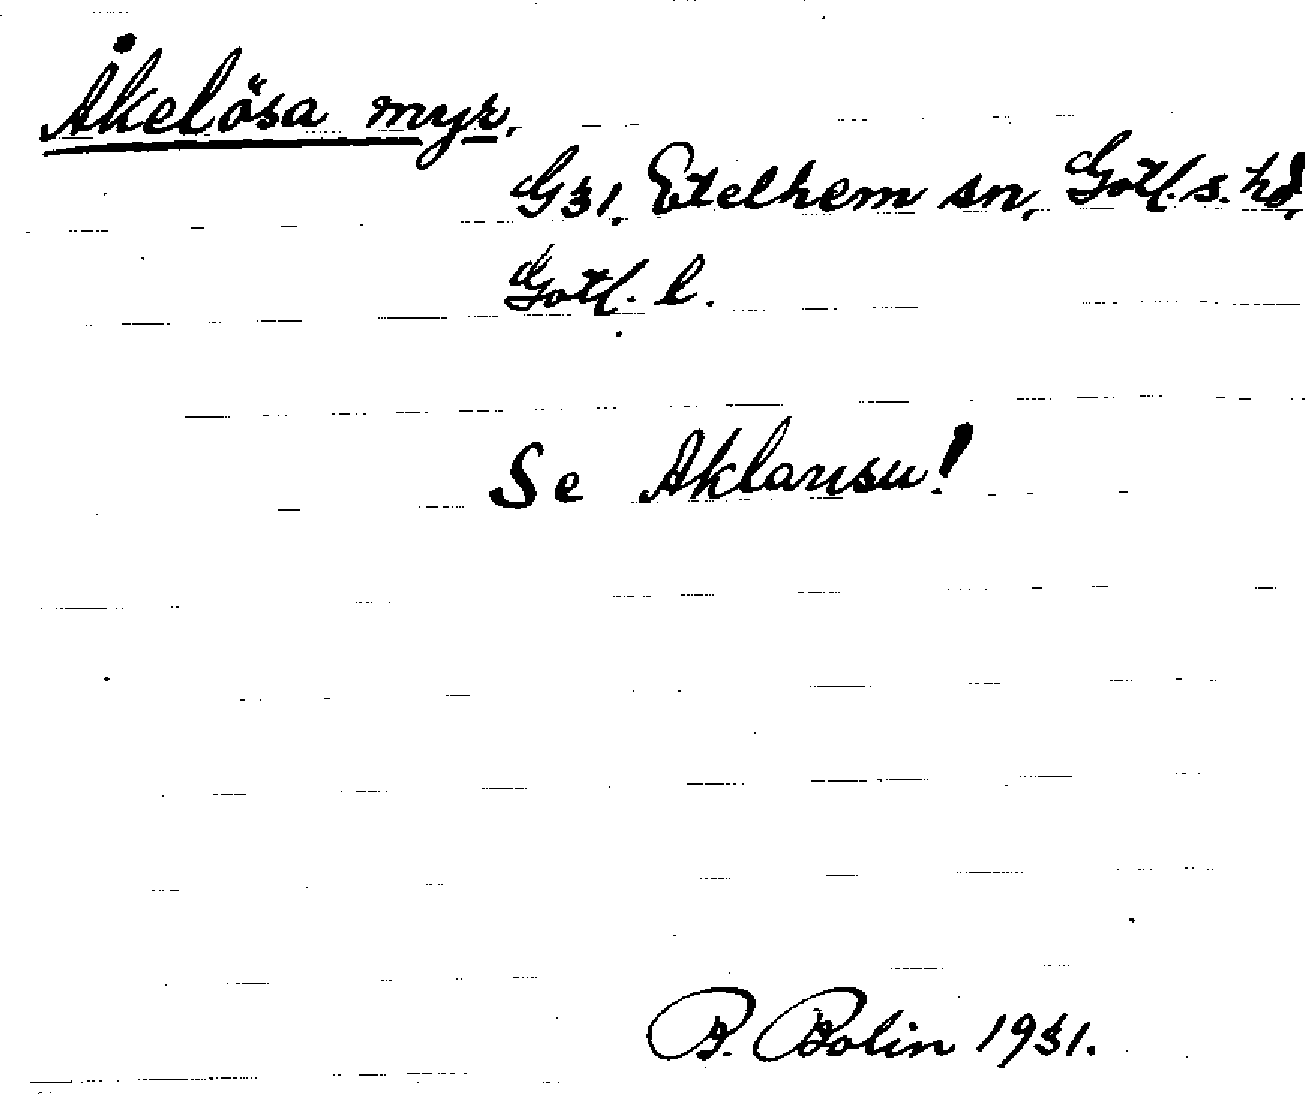 Åkelösa myr,
G31, Etelhem sn, Gotl. s. hd,
Gotl. l.
Se Aklausu!
B. Bolin 1931.